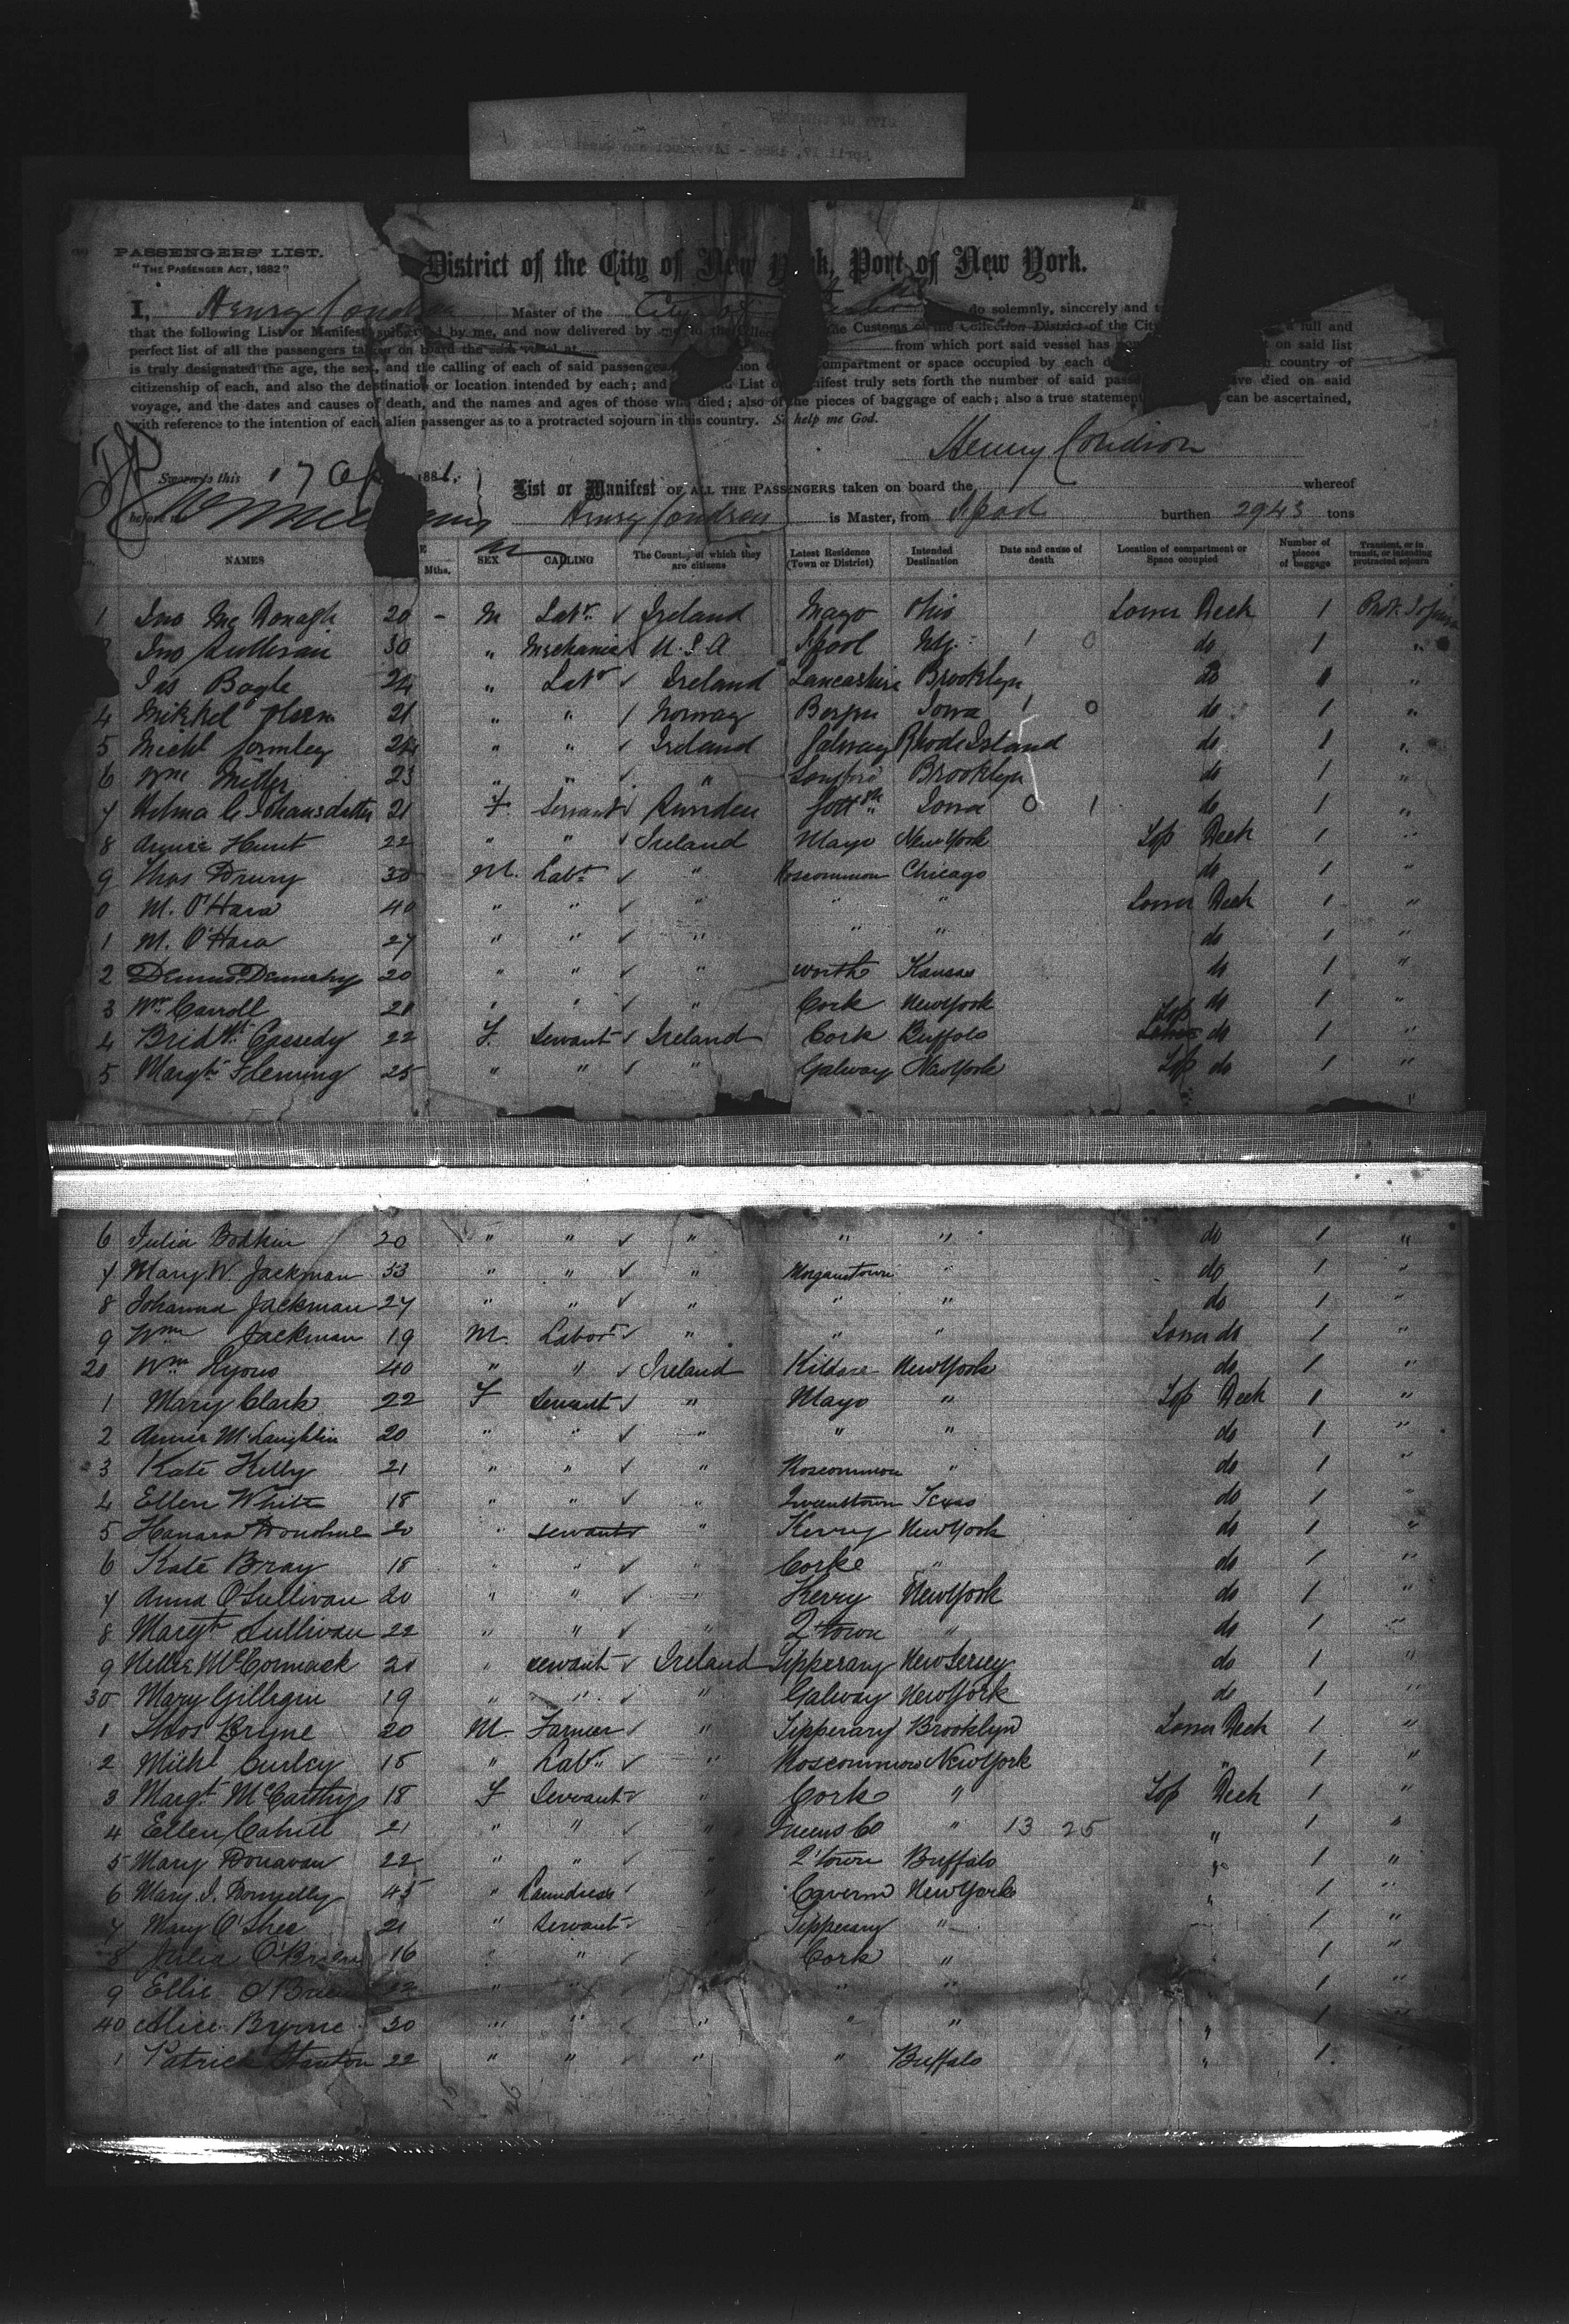 PASSENGERS' LIST.
"THE PASSENGER ACT, 1882"
District of the City of New York, Port of New York.
I, Henry Condron Master of the City of do solemnly, sincerely and
that the following List or Manifest subscribed by me, and now delivered by me to the Collector of the Customs of the Collection District of the City a full and
perfect list of all the passengers taken on board the said vessel at from which port said vessel has now on said list
is truly designated the age, the sex, and the calling of each of said passengers compartment or space occupied by each country of
citizenship of each, and also the destination or location intended by each; and List or Manifest truly sets forth the number of said passe have died on said
voyage, and the dates and causes of death, and the names and ages of those who died; also of the pieces of baggage of each; also a true statement can be ascertained,
with reference to the intention of each alien passenger as to a protracted sojourn in this country. So help me God.
Henry Condron
Sworn to this 17 Ap 1886.
List or Manifest OF ALL THE PASSENGERS taken on board the whereof
before me Henry Condron is Master, from L'pool burthen 2943 tons
NAMES Mths. SEX CALLING The Country of which they are citizens Latest Residence (Town or District) Intended Destination Date and cause of death Location of compartment or Space occupied Number of pieces of baggage Transient, or in transit, or intending protracted sojourn
1 Jno McDonagh 20 - M Labr. Ireland Mayo Ohio Lower Deck 1 Prot. Sojourn
Jno Sullivan 30 " Mechanic U.S.A L'pool N.Y. 1 0 do 1 "
Jas Bogle 24 " Labr Ireland Lancashire Brooklyn do 1 "
4 Mikkel Olsen 21 " " Norway Bergen Iowa 1 0 do 1 "
5 Michl Gormley 24 " " Ireland Galway Rhode Island do 1 "
6 Wm Miller 23 " " " Longford Brooklyn do 1 "
7 Helma C Johansdatter 21 F. Servant Sweden Gottbn Iowa 0 1 do 1 "
8 Annie Hunt 22 " " Ireland Mayo New York Top Deck 1 "
9 Thos Drury 30 M. Labr. " Roscommon Chicago do 1 "
0 M. O'Hara 40 " " " " " Lower Deck 1 "
1 M. O'Hara 27 " " " " " do 1 "
2 Dennis 20 " " " worth Kansas do 1 "
3 Wm Carroll 21 " " " Cork New York do 1 "
4 Bridt. Cassedy 22 F. Servant Ireland Cork Buffalo Top do 1 "
5 Margt Fleming 25 " " " Galway New York Top do 1 "
6 Julia Bodkin 20 " " " " " do 1 "
7 Mary W. Jackman 53 " " " Morganstown " do 1 "
8 Johanna Jackman 27 " " " " " do 1 "
9 Wm Jackman 19 M Labor " " " Lower do 1 "
20 Wm Lyons 40 " " Ireland Kildare New York do 1 "
1 Mary Clark 22 F Servant " Mayo " Top Deck 1 "
2 Annie McLaughlin 20 " " " " " do 1 "
3 Kate Kelly 21 " " " Roscommon " do 1 "
4 Ellen White 18 " " " Queenstown Texas do 1 "
5 Hanara Donohue 20 " servant " Kerry New York do 1 "
6 Kate Bray 18 " " " Corke " do 1 "
7 Anna O'Sullivan 20 " " " Kerry New York do 1 "
8 Margt Sullivan 22 " " " Q'town " do 1 "
9 Nellie McCormack 20 " servant Ireland Tipperary New Jersey do 1 "
30 Mary Gillegin 19 " " " Galway New York do 1 "
1 Thos Bryne 20 M Farmer " Tipperary Brooklyn Lower Deck 1 "
2 Michl Curley 18 " Labr " Roscommon New York " 1 "
3 Margt. McCarthy 18 F Servant " Cork " Top Deck 1 "
4 Ellen Cahill 21 " " " Queens Co " 13 25 " 1 "
5 Mary Donavan 22 " " " Q'town Buffalo " 1 "
6 Mary J. Donnelly 45 " Laundress " Cavern New York " 1 "
7 Mary O'Shea 21 " Servant Tipperary " 1 "
8 Julia O'Brien 16 " " Cork " 1 "
9 Ellie O'Brien 22 " " " " " 1 "
40 Alice Byrne 30 " " " " " " 1 "
1 Patrick Stanton 22 " " " " Buffalo " 1